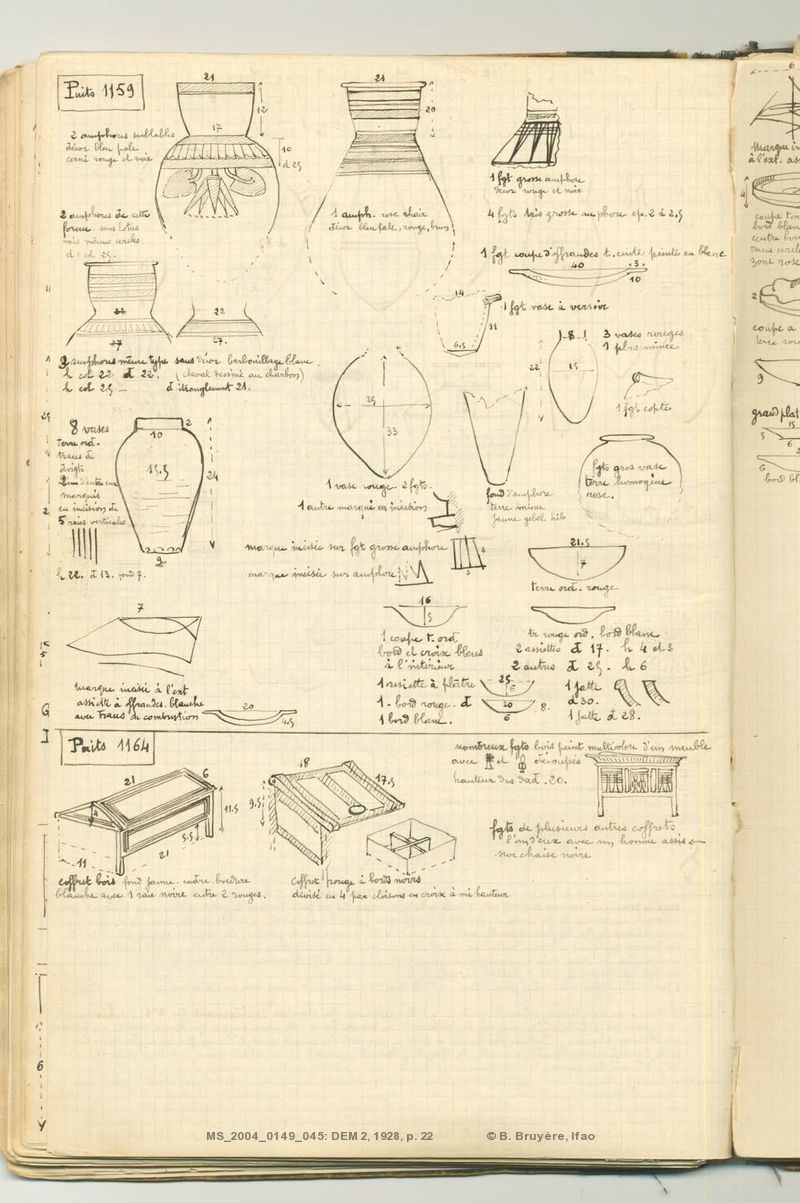 Puits 1159
21
12
17
10
d 25
2 amphores semblables
décor bleu pale
cerné rouge et noir
2 amphores de cette
forme sans lotus
mais mêmes cercles.
d : d 25.
21
20
1 amph. rose
décor bleu pale, rouge, brun
1 fgt grosse amphore
décor rouge et noir
4 fgts très grosse amphore ep. 2 à 2,5
1 fgt coupe d'offrandes t. cuite peinte en blanc
40
3.
10
14
11
6.5
1 fgt vase à versoir
22
27
22
27.
2 amphores même type sans décor barbouillage blanc.
h col 22 d 22. (cheval dessiné au charbon)
h col 25 — d étranglement 21.
8
22
15
3 vases rouges
1 plus mince
1 fgt copte
25
33
1 vase rouge. 2 fgts.
1 autre marqué en incision
8 vases
terre ord.
traces de
doigts
d'entre eux
marqués
en incision de
5 raies verticales
h 22. d 13. fond 7.
10
2
15.5
24
9
fond d'amphore
terre mince
jaune gebel
fgts gros vase
terre homogène
rose.
marque incisée sur fgt grosse amphore
marque incisée sur amphore
21.5
7
terre ord. rouge
7
marque incisée à l'ext
assiette à offrandes. blanche
avec traces de combustion
20
4.5
16
5
1 coupe t. ord
bord et croix bleus
à l'intérieur
te rouge ord. bord blanc
2 assiettes d 17. h 4 et 3
2 autres d 25. h 6
1 assiette à plâtre
1 - bord rouge. d
1 bord blanc.
25
6
20
6
8.
1 jatte
d 30.
1 jatte d 28.
Puits 1164
21
6
11.5
4
5.5
21
11
coffret bois fond jaune. cadre bordure
blanche avec 1 raie noire entre 2 rouges.
18
17.5
9.5
Coffret rouge à bords noirs
divisé en 4 par cloisons en croix à mi hauteur
nombreux fgts bois peint multicolore d'un meuble
avec et découpés
hauteur des dad. 20.
fgts de plusieurs autres coffrets
l'un d'eux avec un homme assis
sur chaise noire
MS_2004_0149_045: DEM 2, 1928, p. 22 © B. Bruyère, Ifao